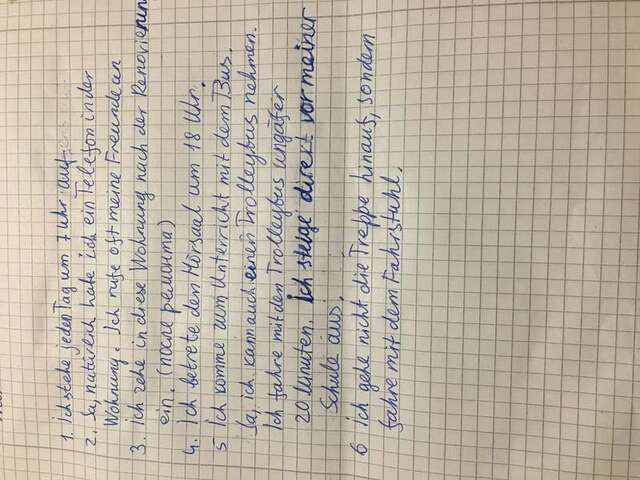 1. Ich stehe jeden Tag um 7 Uhr auf.
2. Ja, natürlich habe ich ein Telefon in der
Wohnung. Ich rufe oft meine Freunde an
3. Ich ziehe in diese Wohnung nach der Renovierung
ein. (после ремонта)
4. Ich betrete den Hörsaal um 18 Uhr.
5 Ich komme zum Unterricht mit dem Bus.
Ja, ich kann auch einen Trolleybus nehmen.
Ich fahre mit dem Trolleybus ungäfer
20 Minuten. Ich steige direkt vor meiner
Schule aus.
6 Ich gehe nicht die Treppe hinauf, sondern
fahre mit dem Fahrstuhl.